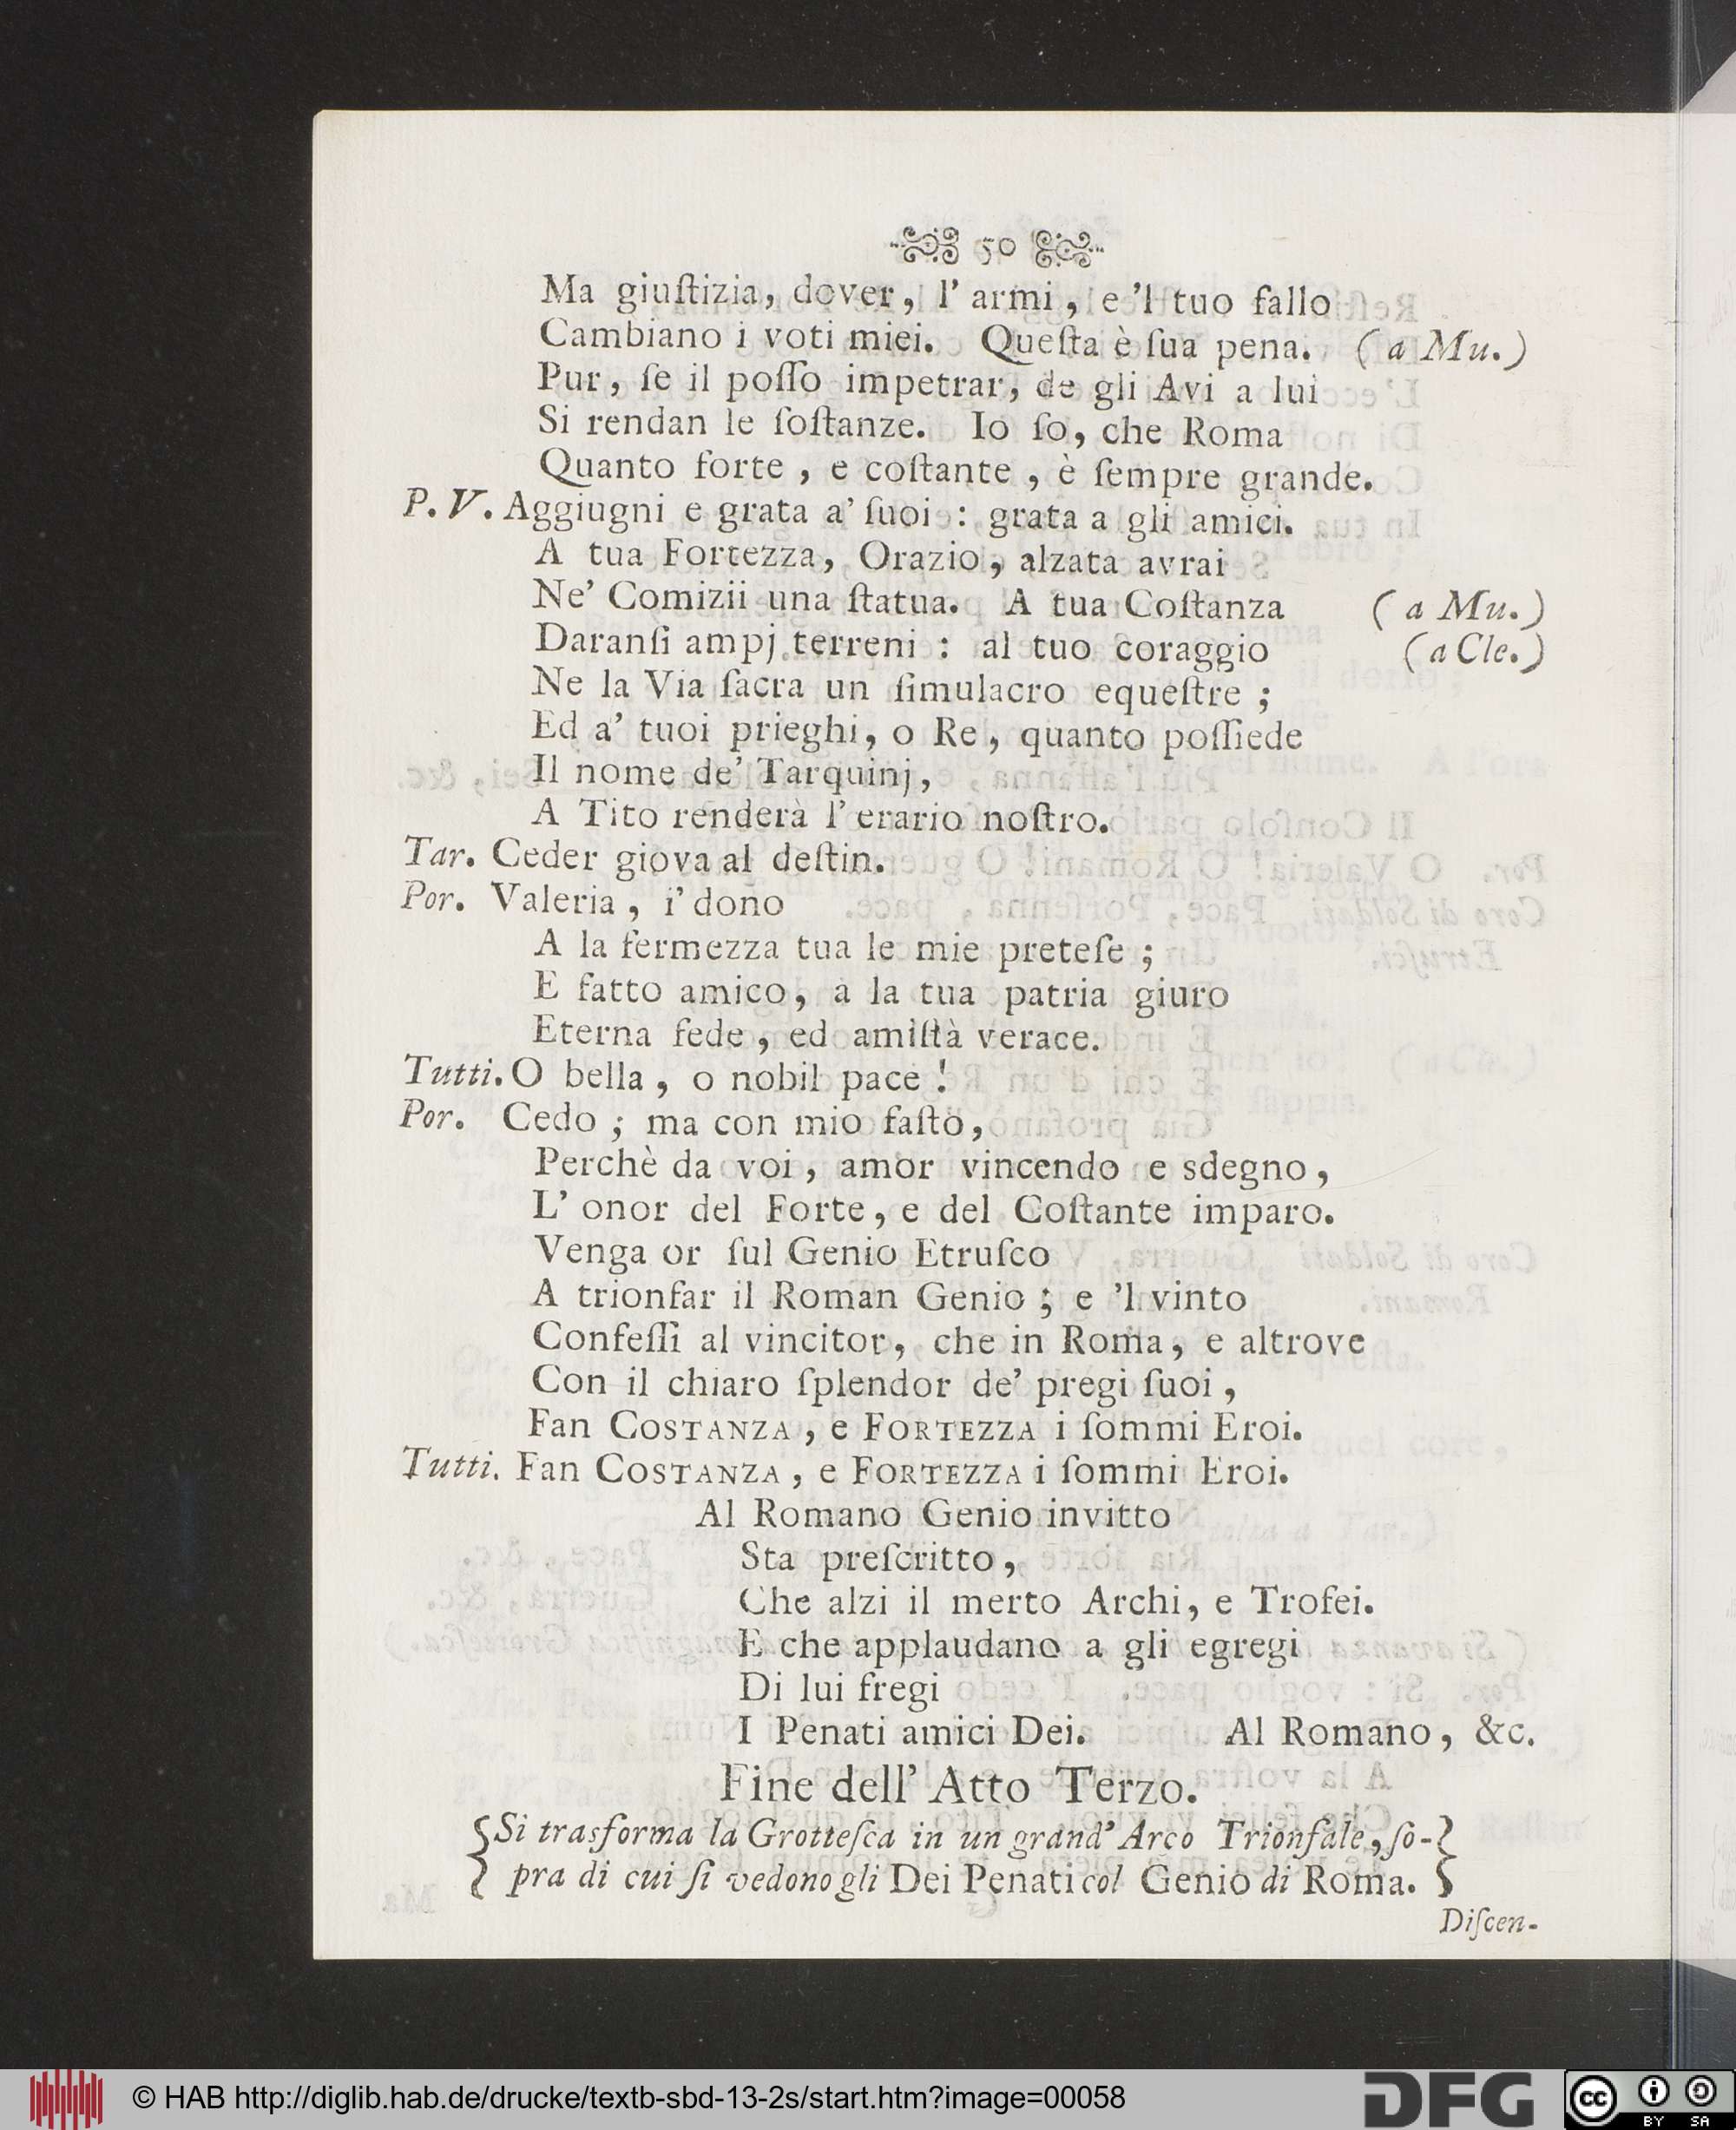 50
Ma giuſtizia, dover, l' armi, e 'l tuo fallo
Cambiano i voti miei. Queſta è ſua pena. (a Mu.)
Pur, ſe il poſſo impetrar, de gli Avi a lui
Si rendan le ſoſtanze. Io ſo, che Roma
Quanto forte, e coſtante, è ſempre grande.
P. V. Aggiugni e grata a' ſuoi: grata a gli amici.
A tua Fortezza, Orazio, alzata avrai
Ne' Comizii una ſtatua. A tua Coſtanza (a Mu.)
Daranſi ampj terreni: al tuo coraggio (a Cle.)
Ne la Via ſacra un ſimulacro equeſtre;
Ed a' tuoi prieghi, o Re, quanto poſſiede
Il nome de' Tarquinj,
A Tito renderà l' erario noſtro.
Tar. Ceder giova al deſtin.
Por. Valeria, i' dono
A la fermezza tua le mie preteſe;
E fatto amico, a la tua patria giuro
Eterna fede, ed amiſtà verace.
Tutti. O bella, o nobil pace!
Por. Cedo; ma con mio faſto,
Perchè da voi, amor vincendo e sdegno,
L' onor del Forte, e del Coſtante imparo.
Venga or ſul Genio Etruſco
A trionfar il Roman Genio; e 'l vinto
Confeſſi al vincitor, che in Roma, e altrove
Con il chiaro ſplendor de' pregi ſuoi,
Fan COSTANZA, e FORTEZZA i ſommi Eroi.
Tutti. Fan COSTANZA, e FORTEZZA i ſommi Eroi.
Al Romano Genio invitto
Sta preſcritto,
Che alzi il merto Archi, e Trofei.
E che applaudano a gli egregi
Di lui fregi
I Penati amici Dei. Al Romano, &c.
Fine dell' Atto Terzo.
{Si trasforma la Grotteſca in un grand' Arco Trionfale, ſo-}
{pra di cui ſi vedono gli Dei Penati col Genio di Roma.}
Diſcen-
© HAB http://diglib.hab.de/drucke/textb-sbd-13-2s/start.htm?image=00058
DFG
cc BY SA